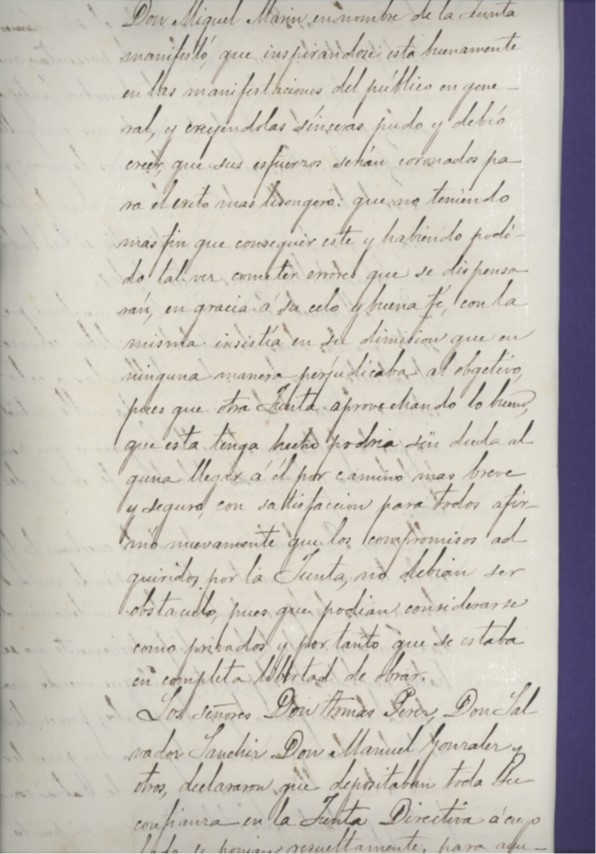 Don Miguel Marin en nombre de la Junta
manifestó, que inspirandose esta buenamente
en las manifestaciones del público en gene-
ral, y creyendolas sinceras pudo y debió
creer, que sus esfuerzos serian coronados pa-
ra el exito mas lisongero: que no teniendo
mas fin que conseguir este y habiendo podi-
do tal vez cometer errores que se dispensa-
rán, en gracia á su celo y buena fé, con la
misma insistia en su dimision que en
ninguna manera perjudicaba al obgetivo,
pues que otra Junta aprovechando lo bueno,
que esta tenga hecho podria sin duda al-
guna llegar á él por camino mas breve
y seguro, con satisfaccion para todos afir-
mó nuevamente que los compromisos ad-
quiridos por la Junta, no debian ser
obstaculo, pues que podian considerarse
como privados y por tanto que se estaba
en completa libertad de obrar.
Los señores Don Perez, Don Sal-
vador Sanchiz Don Manuel Gonzalez y
otros, declararon que depositaban toda su
confianza en la Junta Directiva á cuyo
lado se ponian resueltamente, para